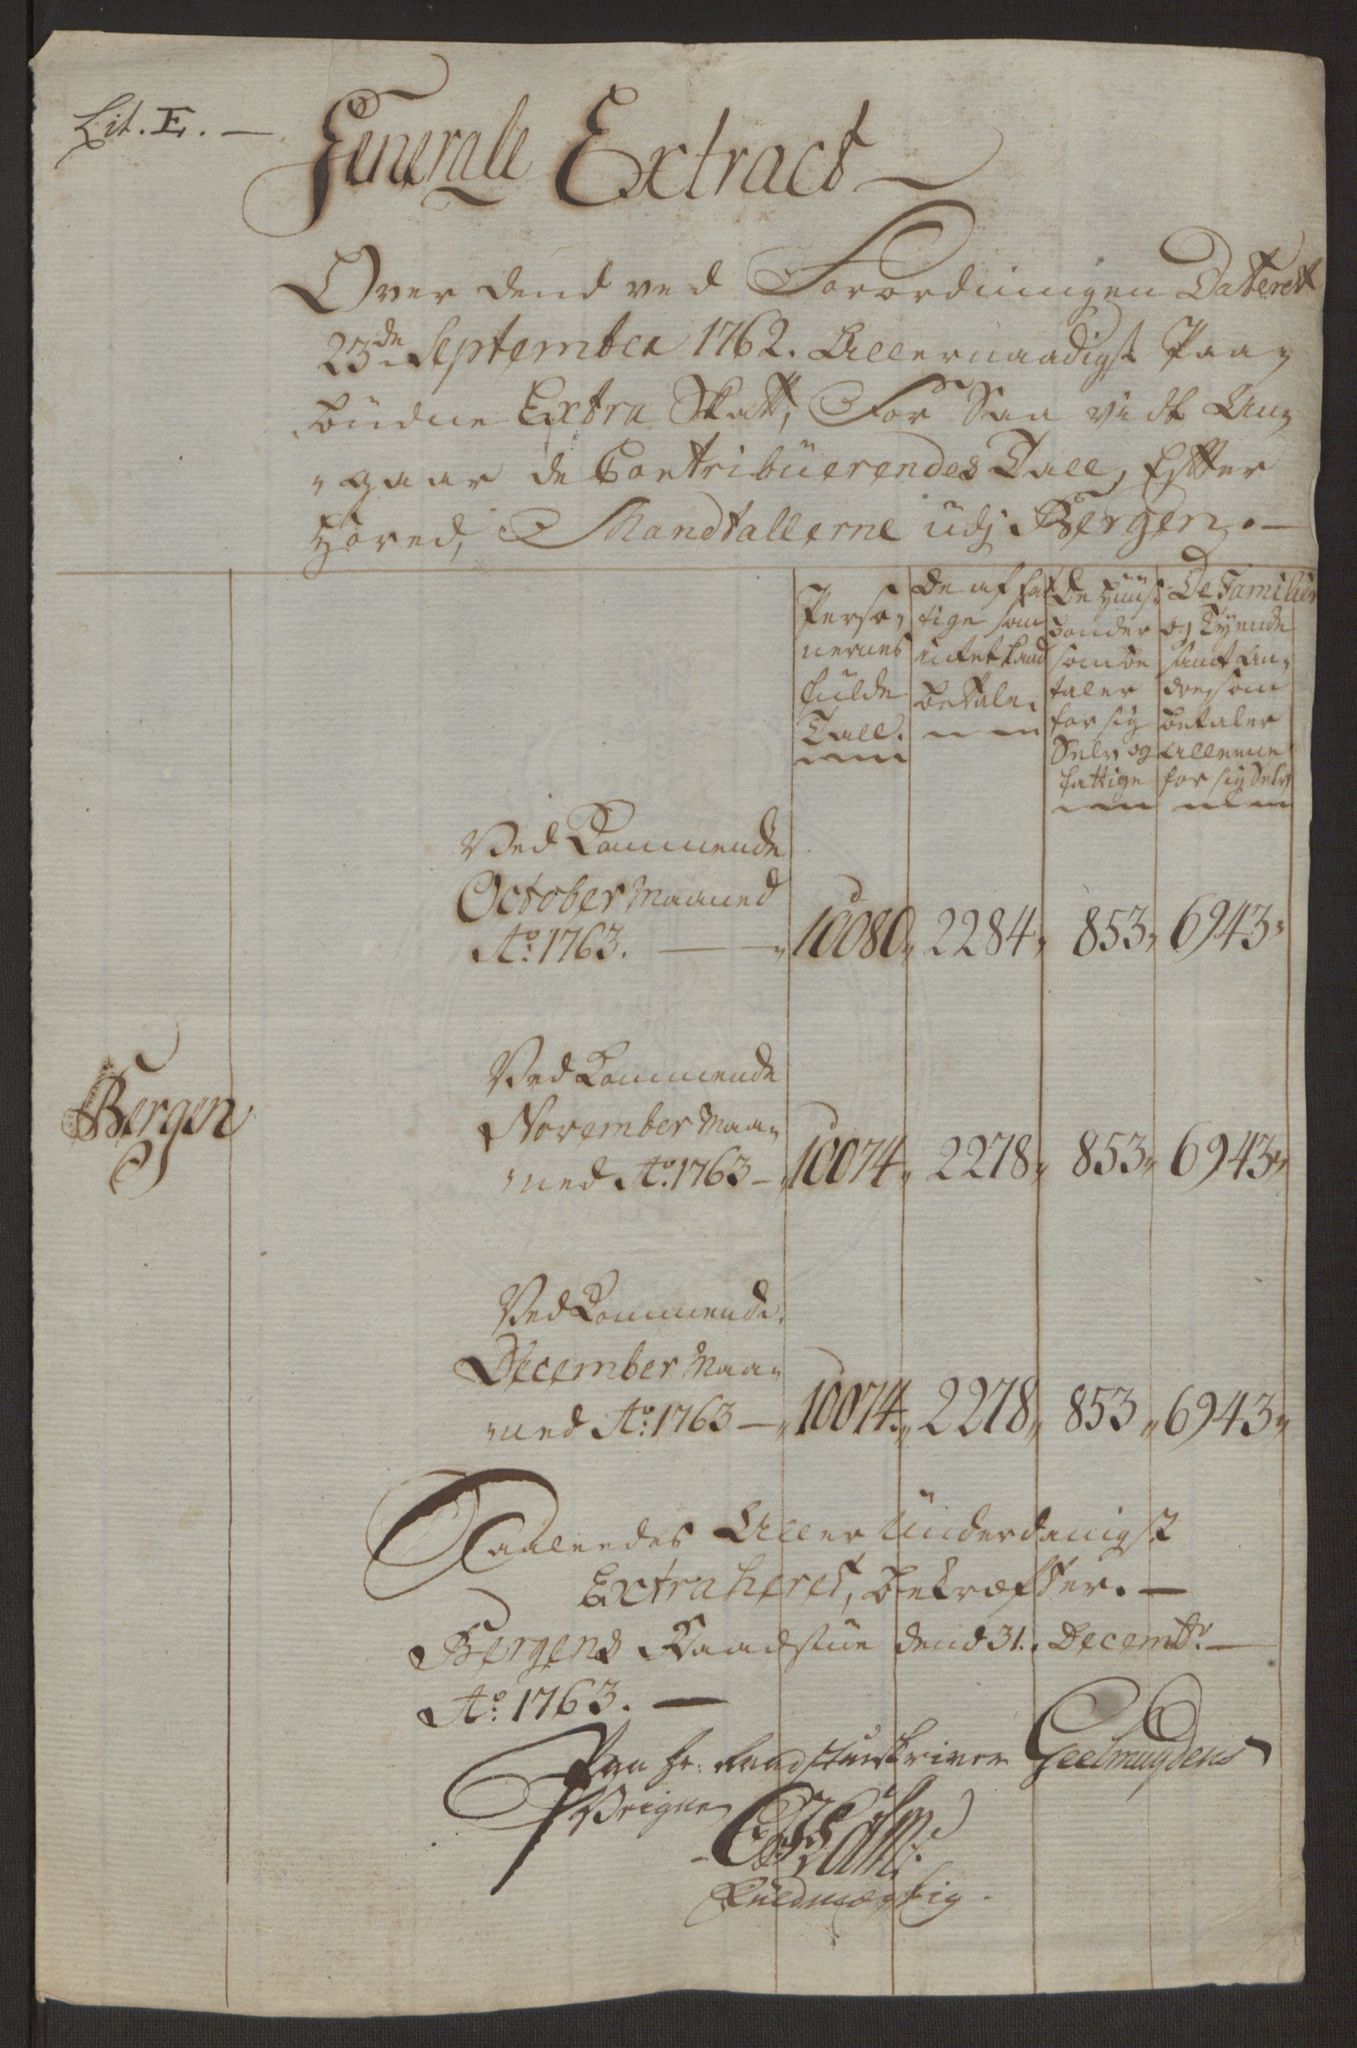 Lit. E. —
Generale Extract
Over dend ved Forordningen Dateret
23de September 1762. Allernaadigst Paa-
budne Extra Skatt, For Saa vidt An-
-gaar de Contribuerendes Tall, Efter
Hoved, Mandtallerne udj Bergen. —
Perso-
nernes
fulde
Tall.
De af fat
tige som
intet kand
betale.
De Huus-
bonder
som be
taler
for sig
Selv og
fattige
De Familier
og Tyende
samt An-
dre som
betaler
alleene
for sig Selv
Ved Kommende
October Maaned
Ao. 1763. — 10080 2284 853 6943
Bergen
Ved Kommende
November Maa-
-ned Ao. 1763 — 10074 2278 853 6943
Ved Kommende
December Maa-
-ned Ao. 1763 — 10074 2278 853 6943
Saaledes Aller Underdanigst
Extraheret, bekræfter. —
Bergens Raadstue dend 31. Decembr. —
Ao. 1763. —
Paa Hr. Raadstueskriver Geelmuydens
Veigne
Fuldmægtig.